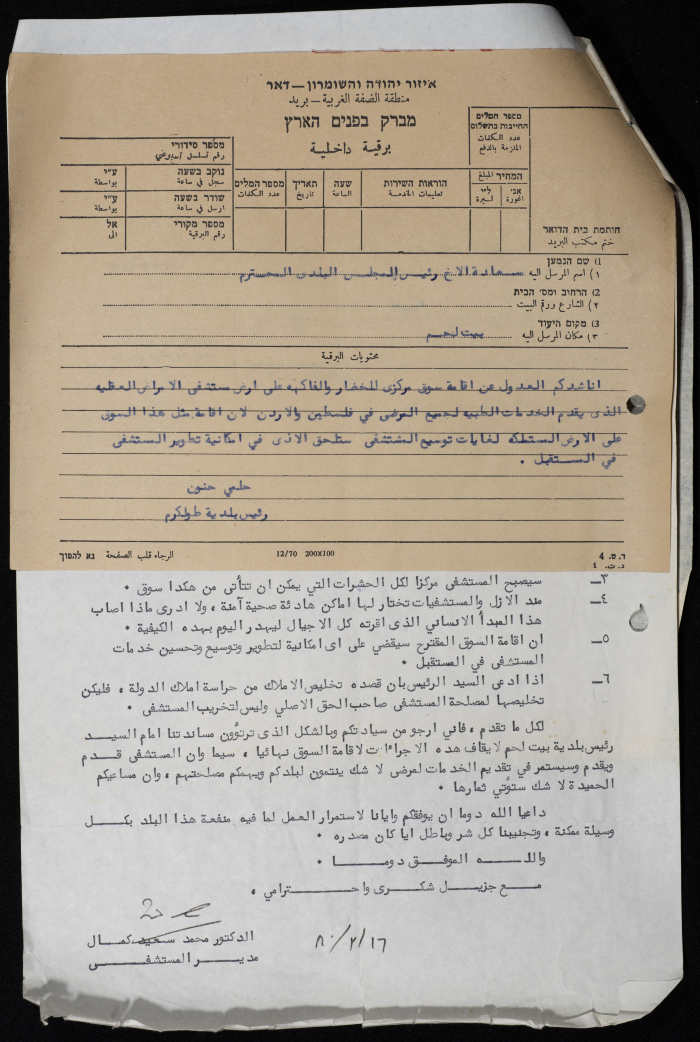 איזור יהודה והשומרון — דאר
منطقة الضفة الغربية – بريد
מברק בפנים הארץ
برقية داخلية
מספר המלים
החייבות בתשלום
عدد الكلمات
الملزمة بالدفع
המחיר المبلغ
אג׳ ל״י
اغورة ليرة
הוראות השירות
تعليمات الخدمة
שעה
الساعة
תאריך
تاريخ
מספר המלים
عدد الكلمات
מספר סידורי
رقم تسلسل اسبوعي
נוקב בשעה ע״י
سجل في ساعة بواسطة
שודר בשעה ע״י
ارسل في ساعة بواسطة
מספר מקורי אל
رقم البرقية الى
חותמת בית הדואר
ختم مكتب البريد
1) שם הנמען
١) اسم المرسل اليه سعادة الاخ رئيس المجلس البلدى المحترم
2) הרחוב ומס׳ הבית
٢) الشارع ورقم البيت
3) מקום היעוד
٣) مكان المرسل اليه بيت لحم
محتويات البرقية
اناشدكم العدول عن اقامة سوق مركزى للخضار والفاكهه على ارض مستشفى الامراض العقليه
الذى يقدم الخدمات الطبيه لجميع المرضى في فلسطين والاردن لان اقامة مثل هذا السوق
على الارض المستملكه لغايات توسيع المستشفى ستلحق الاذى في امكانية تطوير المستشفى
في المستقبل .
حلمي حنون
رئيس بلدية طولكرم
ד. ס. 4
د. ت. ٤
12/70 200X100
الرجاء قلب الصفحة נא להפוך
٣ــ سيصبح المستشفى مركزا لكل الحشرات التي يمكن ان تتأتى من هكذا سوق .
٤ــ منذ الازل والمستشفيات تختار لها اماكن هادئة صحية آمنة ، ولا ادرى ماذا اصاب
هذا المبدأ الانساني الذى اقرته كل الاجيال ليهدر اليوم بهذه الكيفية .
٥ــ ان اقامة السوق المقترح سيقضي على اى امكانية لتطوير وتوسيع وتحسين خدمات
المستشفى في المستقبل .
٦ــ اذا ادعى السيد الرئيس بان قصده تخليص الاملاك من حراسة املاك الدولة ، فليكن
تخليصها لمصلحة المستشفى صاحب الحق الاصلي وليس لتخريب المستشفى .
لكل ما تقدم ، فاني ارجو من سيادتكم وبالشكل الذى ترتؤون مساندتنا امام السيد
رئيس بلدية بيت لحم لايقاف هذه الاجراءات لاقامة السوق نهائيا ، سيما وان المستشفى قدم
ويقدم وسيستمر في تقديم الخدمات لمرضى لا شك ينتمون لبلدكم ويهمكم مصلحتهم ، وان مساعيكم
الحميدة لا شك ستؤتي ثمارها .
داعيا الله دوما ان يوفقكم وايانا لاستمرار العمل لما فيه منفعة هذا البلد بكل
وسيلة ممكنة ، وتجنيبنا كل شر وباطل ايا كان مصدره .
والله الموفق دوما .
مع جزيل شكرى واحترامي ،
الدكتور محمد سعيد كمال
مدير المستشفى
٨٠/٢/١٦